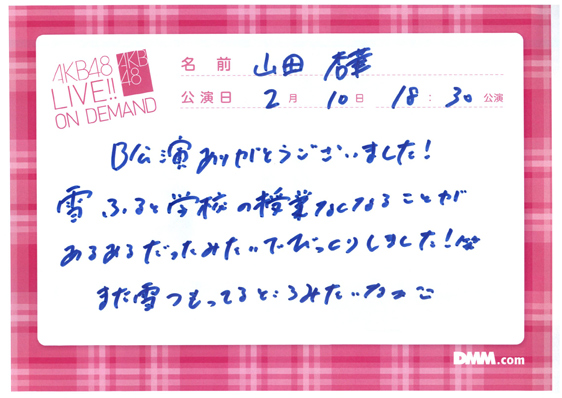 AKB48
LIVE!!
ON DEMAND
AKB
48
名前 山田 杏華
公演日 2月 10日 18:30公演
B公演ありがとうございました！
雪ふると学校の授業なくなることが
あるあるだったみたいでびっくりしました！
まだ雪つもってるところみたいなー
DMM.com